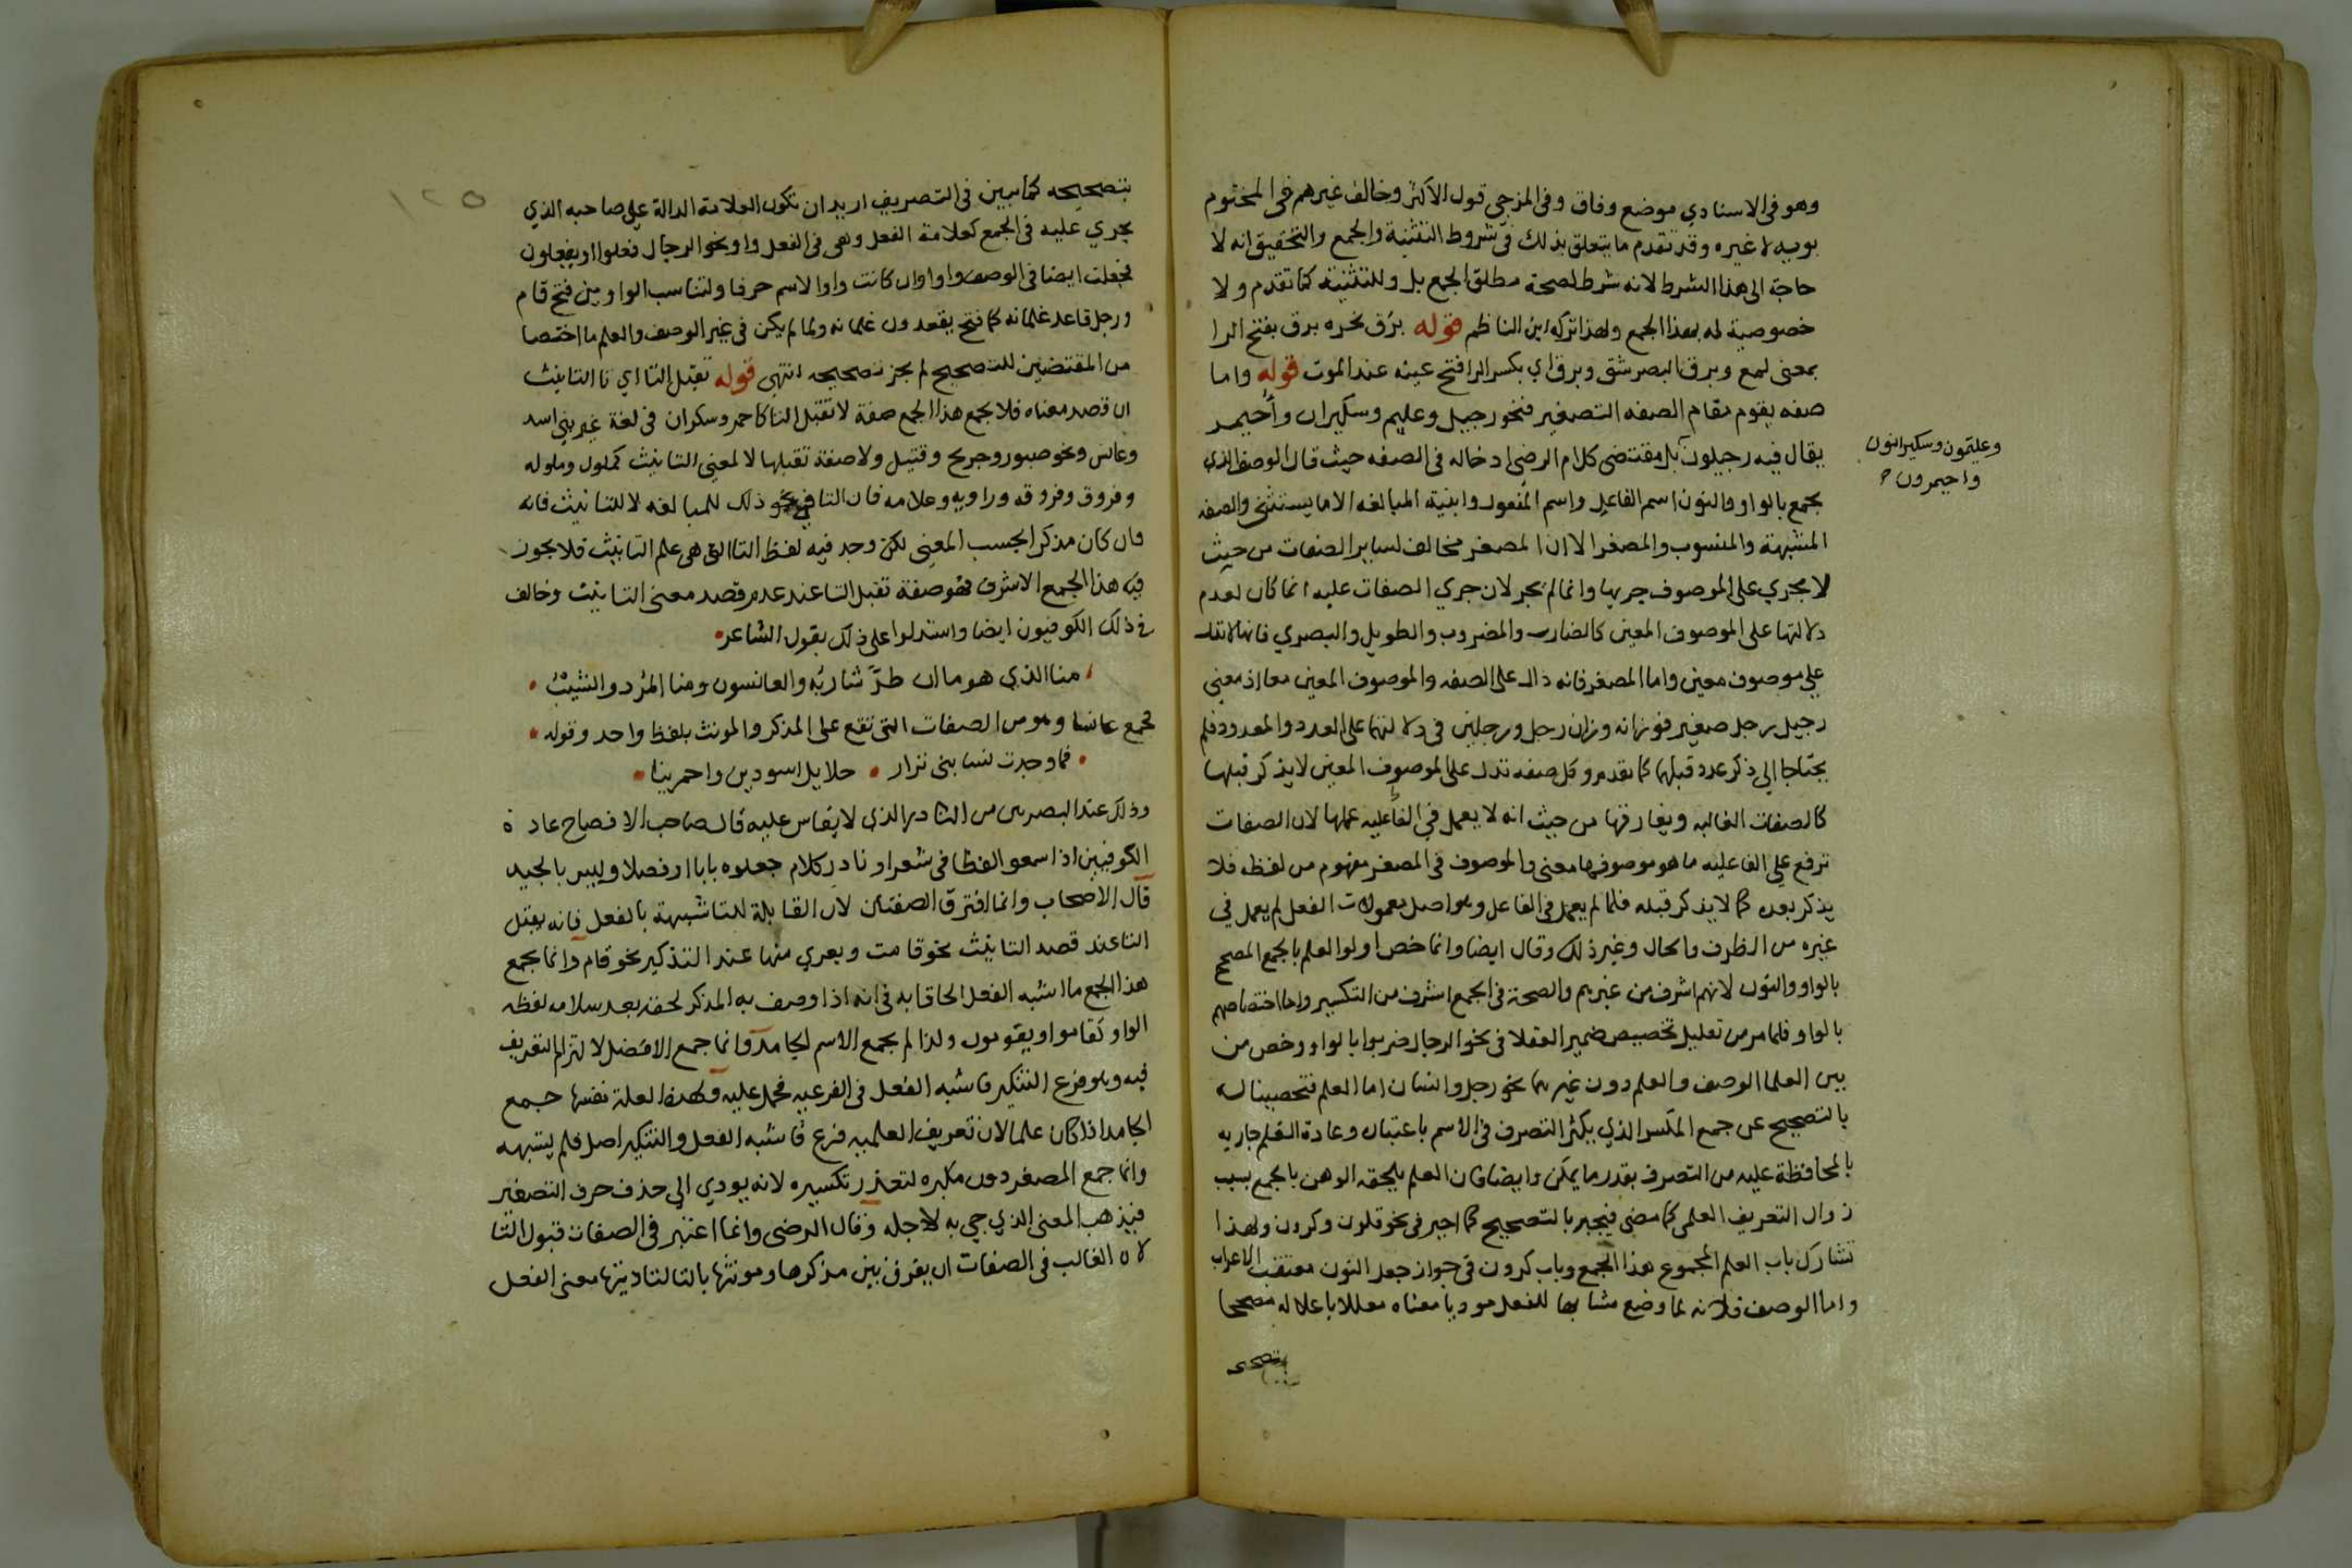 وهو في الاسنادي موضع وفاق وفي المزجي قول الاكثر وخالف غيرهم في المختوم
بويه لا غيره وقد تقدم ما يتعلق بذلك في شروط التثنية والجمع والتحقيق انه لا
حاجة الى هذا الشرط لانه شرط لصحة مطلق الجمع بل وللتثنية كما تقدم ولا
خصوصية له بهذا الجمع ولهذا تركه ابن الناظم قوله برق نحره برق بفتح الرا
بمعنى لمع وبرق البصر شق وبرق اي بكسر الرا فتح عينه عند الموت قوله واما
صفه يقوم مقام الصفه التصغير فنحو رجيل وعليم وسكيران وأحيمر
يقال فيه رجيلون بل مقتضى كلام الرضي ادخاله في الصفه حيث قال الوصف الذي
وعليمون وسكيرانون
واحيمرون
يجمع بالواو والنون اسم الفاعل واسم المفعول وابنية المبالغه الا ما يستثنى والصفه
المشبهة والمنسوب والمصغر الا ان المصغر مخالف لساير الصفات من حيث
لا يجري على الموصوف جريها وانما لم يجر لان جري الصفات عليه انما كان لعدم
دلالتها على الموصوف المعين كالضارب والمضروب والطويل والبصري فانها لا تدل
علي موصوف معين واما المصغر فانه دال على الصفه والموصوف المعين معا اذ معنى
رجيل رجل صغير فوزانه وزان رجل ورجلين في دلالتهما على العدد والمعدود فلم
يحتاجا الي ذكر عدد قبلهما كما تقدم وكل صفه تدل على الموصوف المعين لا يذكر قبلها
كالصفات الغالبه ويفارقها من حيث انه لا يعمل في الفاعليه عملها لان الصفات
ترفع علي الفاعليه ما هو موصوفها معنى والموصوف في المصغر مفهوم من لفظه فلا
يذكر بعده كما لا يذكر قبله فلما لم يعمل في الفاعل وهو اصل معمولات الفعل لم يعمل في
غيره من الظرف والحال وغير ذلك وقال ايضا وانما خص اولوا العلم بالجمع المصحح
بالواو والنون لانهم اشرف من غيرهم والصحة في الجمع اشرف من التكسير واما اختصاصهم
بالواو فلما مر من تعليل تخصيص ضمير العقلا في نحو الرجال ضربوا بالواو وخص من
بين العلما الوصف والعلم دون غيرهما نحو رجل وانسان اما العلم فتحصينا له
بالتصحيح عن جمع المكسر الذي يكثر التصرف في الاسم باعتباره وعادة العلم جاريه
بالمحافظة عليه من التصرف بقدر ما يمكن وايضا فان العلم يلحقه الوهن بالجمع بسبب
زوال التعريف العلمي كما مضى فيجبر بالتصحيح كما اجبر في نحو قلون وكرون ولهذا
تشارك باب العلم المجموع هذا الجمع وباب كرون في جواز جعل النون معتقب الاعراب
واما الوصف فلانه لما وضع مشابها للفعل موديا معناه معللا باعلاله مصححا
بتصحيحه
بتصحيحه كما سيبين في التصريف اريد ان تكون العلامة الدالة علي صاحبه الذي
يجري عليه في الجمع كعلامة الفعل وهي في الفعل واو نحو الرجال فعلوا او يفعلون
فجعلت ايضا في الوصف واوا وان كانت واو الاسم حرفا ولتناسب الواوين فتح قام
ورجل قاعد غلمانه كما فتح يقعدون غلمانه ولما لم يكن في غير الوصف والعلم ما اختصا
من المقتضيين للتصحيح لم يجز تصحيحه انتهى قوله تقبل التا اي تا التانيث
ان قصد معناه فلا يجمع هذا الجمع صفة لا تقبل التا كاحمر وسكران في لغة غير بني اسد
وعانس ونحو صبور وجريح وقتيل ولا صفة تقبلها لا لمعنى التانيث كملول وملوله
وفروق وفروقه وراويه وعلامه فان التا في نحو ذلك للمبالغه لا للتانيث فانه
وان كان مذكرا بحسب المعنى لكن وجد فيه لفظ التا التي هي علم التانيث فلا يجوز
فيه هذا الجمع الاشرف فهو صفة تقبل التا عند عدم قصد معنى التانيث وخالف
في ذلك الكوفيون ايضا واستدلوا على ذلك بقول الشاعر
منا الذي هو ما ان طرَّ شاربه والعانسون ومنا المُرْد والشيبُ
فجمع عانسا وهو من الصفات التي تقع على المذكر والمونث بلفظ واحد وقوله
فما وجدت نسا بني نزار حلايل اسودين واحمرينا
وذلك عند البصريين من النادر الذي لا يقاس عليه قال صاحب الافصاح عادة
الكوفيين اذا سمعوا لفظا في شعر او نادر كلام جعلوه بابا او فصلا وليس بالجيد
قال الاصحاب وانما افترق الصفتان لان القابلة للتا شبيهة بالفعل فانه يقبل
التا عند قصد التانيث نحو قامت ويعري منها عند التذكير نحو قام وانما يجمع
هذا الجمع ما اشبه الفعل الحاقا به في انه اذا وصف به المذكر لحقته بعد سلامه لفظه
الواو كقاموا ويقومون ولذا لم يجمع الاسم الجامد وانما جمع الافضل لالتزام التعريف
فيه وهو فرع التنكير فاشبه الفعل في الفرعيه فحمل عليه ولهذه العلة نفسها جمع
الجامد اذا كان علما لان تعريف العلميه فرع فاشبه الفعل والتنكير اصل فلم يشبهه
وانما جمع المصغر دون مكبره لتعذر تكسيره لانه يودي الي حذف حرف التصغير
فيذهب المعنى الذي جي به لاجله وقال الرضى وانما اعتبر في الصفات قبول التا
لان الغالب في الصفات ان يفرق بين مذكرها ومونثها بالتا لتاديتها معنى الفعل
١٢٥